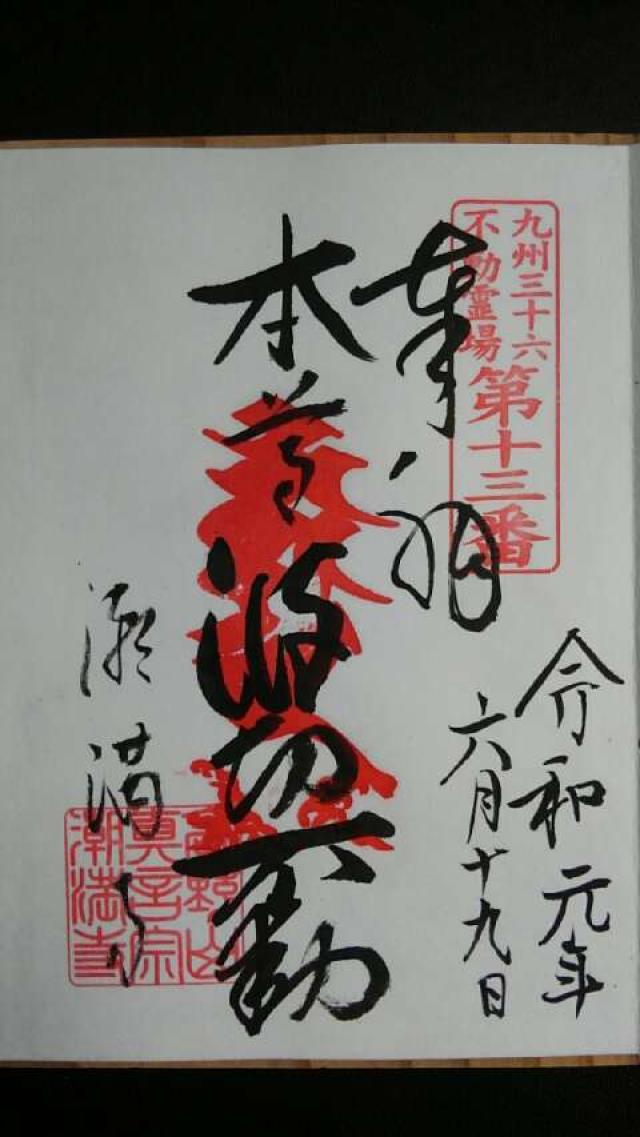 九州三十六
不動霊場
第十三番
令和元年
六月十九日
奉拝
本尊波切不動
潮満寺
真言宗
潮満寺